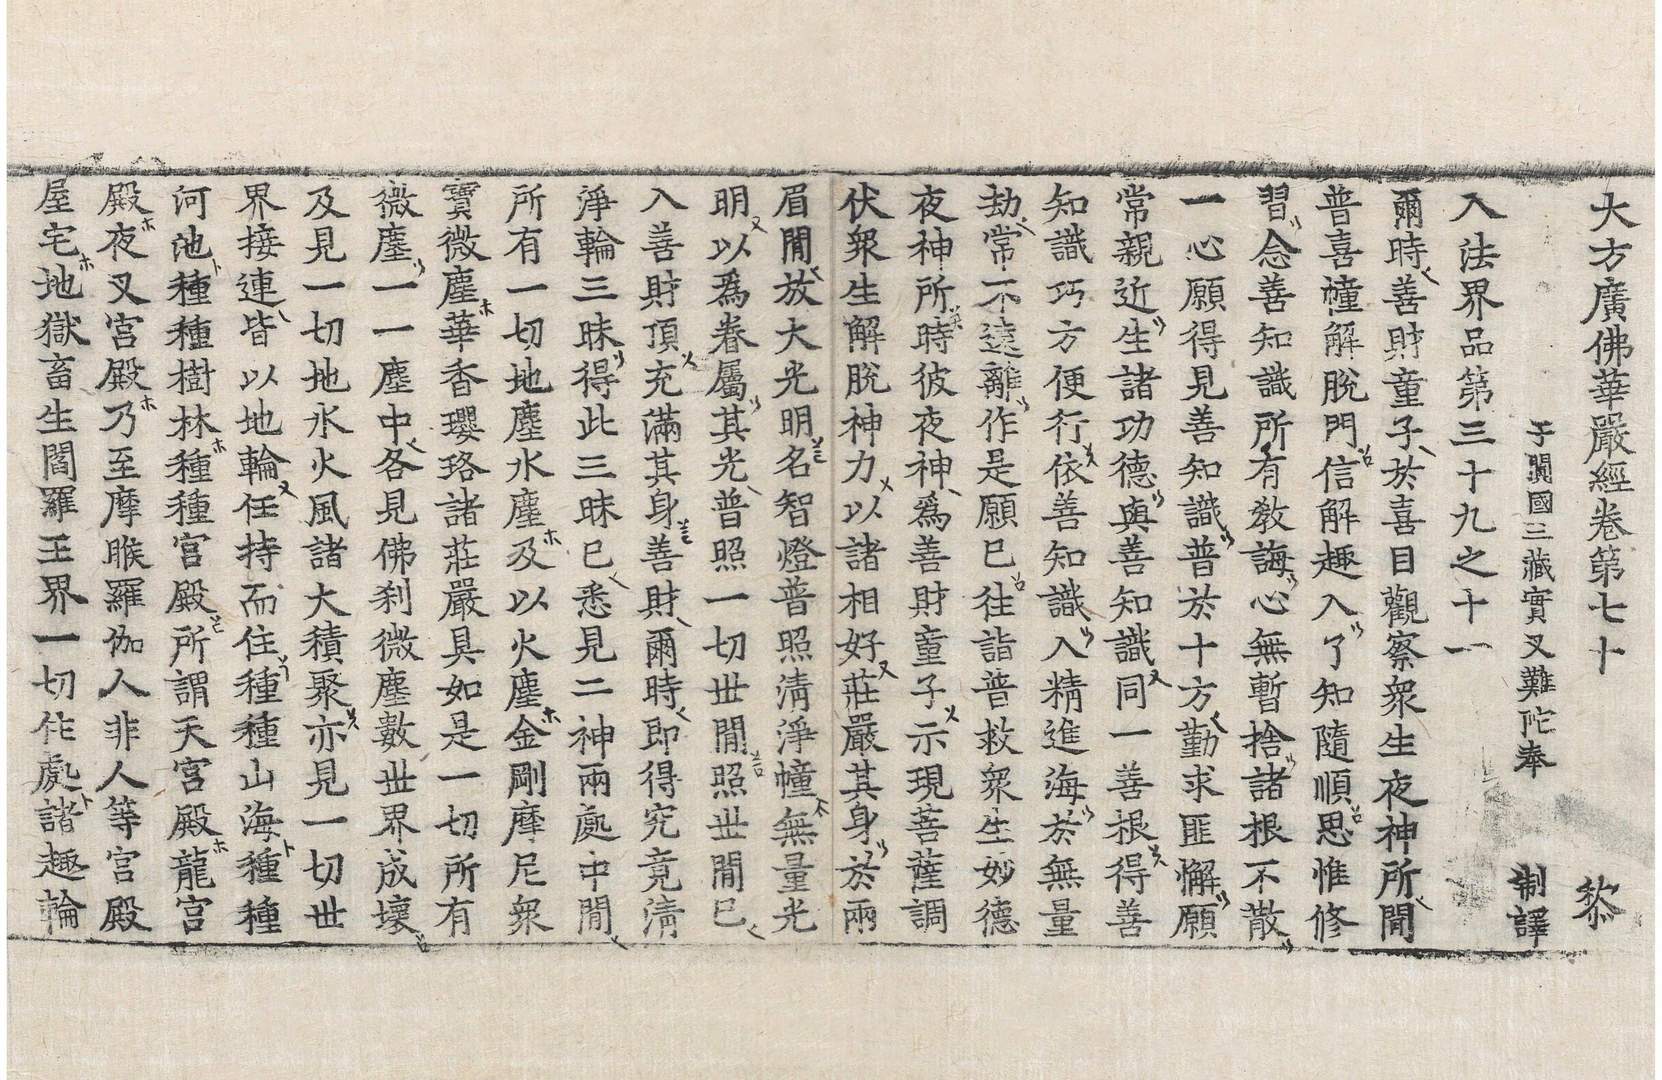 大方廣佛華嚴經卷第七十 黎
于闐國三藏實叉難陀奉 制譯
入法界品第三十九之十一
爾時善財童子於喜目觀察衆生夜神所聞
普喜幢解脫門信解趣入了知隨順思惟修
習念善知識所有敎誨心無暫捨諸根不散
一心願得見善知識普於十方勤求匪懈願
常親近生諸功德與善知識同一善根得善
知識巧方便行依善知識入精進海於無量
劫常不遠離作是願已往詣普救衆生妙德
夜神所時彼夜神爲善財童子示現菩薩調
伏衆生解脫神力以諸相好莊嚴其身於兩
眉間放大光明名智燈普照淸淨幢無量光
明以爲眷屬其光普照一切世間照世間已
入善財頂充滿其身善財爾時即得究竟淸
淨輪三昧得此三昧已悉見二神兩處中間
所有一切地塵水塵及以火塵金剛摩尼衆
寶微塵華香瓔珞諸莊嚴具如是一切所有
微塵一一塵中各見佛刹微塵數世界成壞
及見一切地水火風諸大積聚亦見一切世
界接連皆以地輪任持而住種種山海種種
河池種種樹林種種宮殿所謂天宮殿龍宮
殿夜叉宮殿乃至摩睺羅伽人非人等宮殿
屋宅地獄畜生閻羅王界一切住處諸趣輪